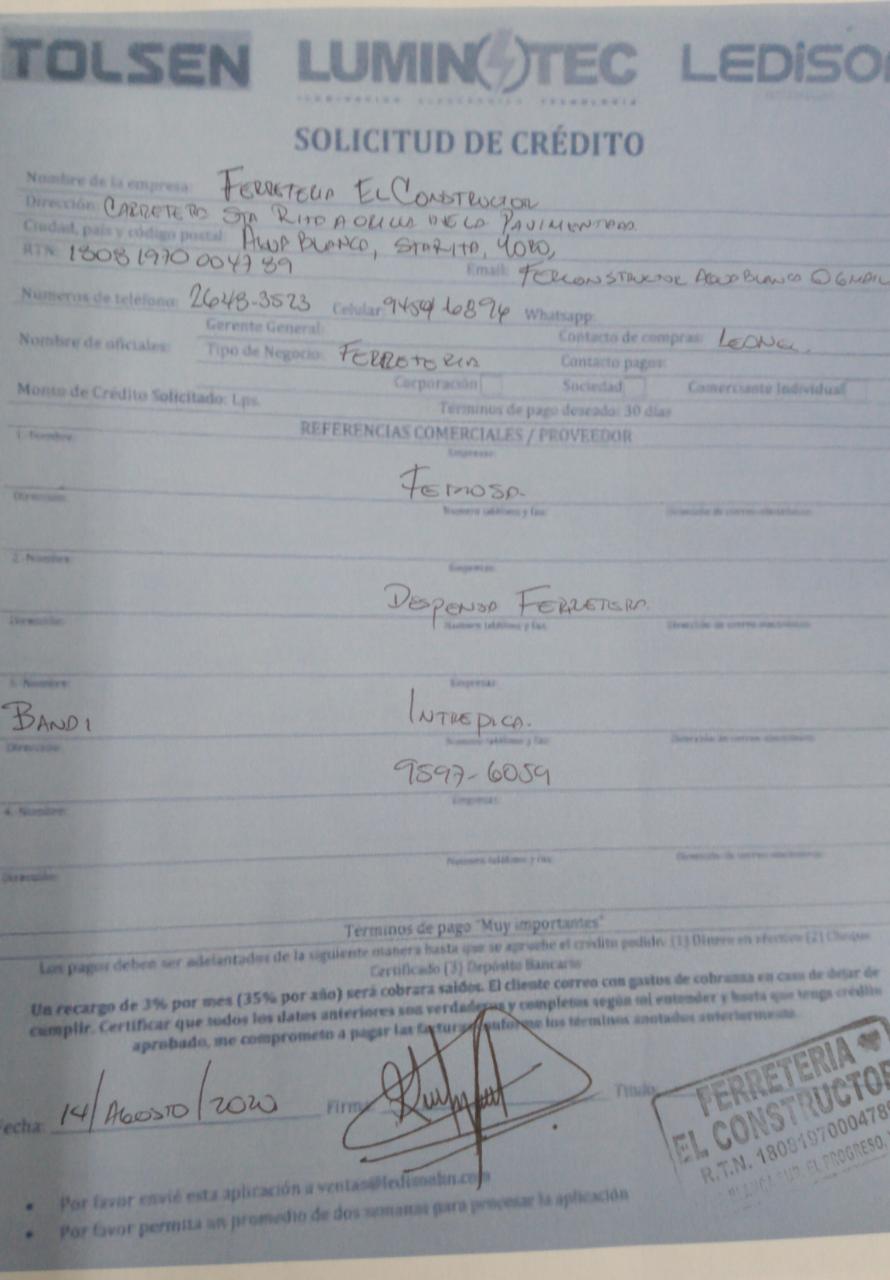 TOLSEN LUMINOTEC LEDiSO
ILUMINACION ELECTRONICA TECNOLOGIA
SOLICITUD DE CRÉDITO
Nombre de la empresa: FERRETERIA EL CONSTRUCTOR
Dirección: CARRETERA STA RITA A ORILLA DE LA PAVIMENTADA.
Ciudad, país y código postal: AGUA BLANCA, STA RITA, YORO,
RTN: 18081970004789 Email: FERCONSTRUCTOR AGUA BLANCA @GMAIL
Numeros de teléfono: 2648-3523 Celular: 9454 6894 Whatsapp:
Gerente General: Contacto de compras: LEONEL.
Nombre de oficiales: Tipo de Negocio: FERRETERIA Contacto pagos:
Corporación Sociedad Comerciante Individual
Monto de Crédito Solicitado: Lps. Términos de pago deseado: 30 días
REFERENCIAS COMERCIALES / PROVEEDOR
1. Nombre: Empresa:
FEMOSA.
Dirección: Numero teléfono y fax: Dirección de correo electrónico:
2. Nombre: Empresa:
DESPENSA FERRETERA.
Dirección: Numero teléfono y fax: Dirección de correo electrónico:
3. Nombre: Empresa:
BANDI INTREPICA.
Dirección: Numero teléfono y fax: Dirección de correo electrónico:
9597-6059
4. Nombre: Empresa:
Dirección: Numero teléfono y fax: Dirección de correo electrónico:
Términos de pago "Muy importantes"
Los pagos deben ser adelantados de la siguiente manera hasta que se apruebe el crédito pedido: (1) Dinero en efectivo (2) Cheque
Certificado (3) Depósito Bancario
Un recargo de 3% por mes (35% por año) será cobrara saldos. El cliente correo con gastos de cobranza en caso de dejar de
cumplir. Certificar que todos los datos anteriores son verdaderos y completos según mi entender y hasta que tenga crédito
aprobado, me comprometo a pagar las facturas conforme los términos anotados anteriormente.
Fecha: 14/AGOSTO/2020 Firma: Titulo:
FERRETERIA
EL CONSTRUCTOR
R.T.N. 1808197000478
EL PROGRESO,
• Por favor envié esta aplicación a ventas@ledisonhn.com
• Por favor permita un promedio de dos semanas para procesar la aplicación